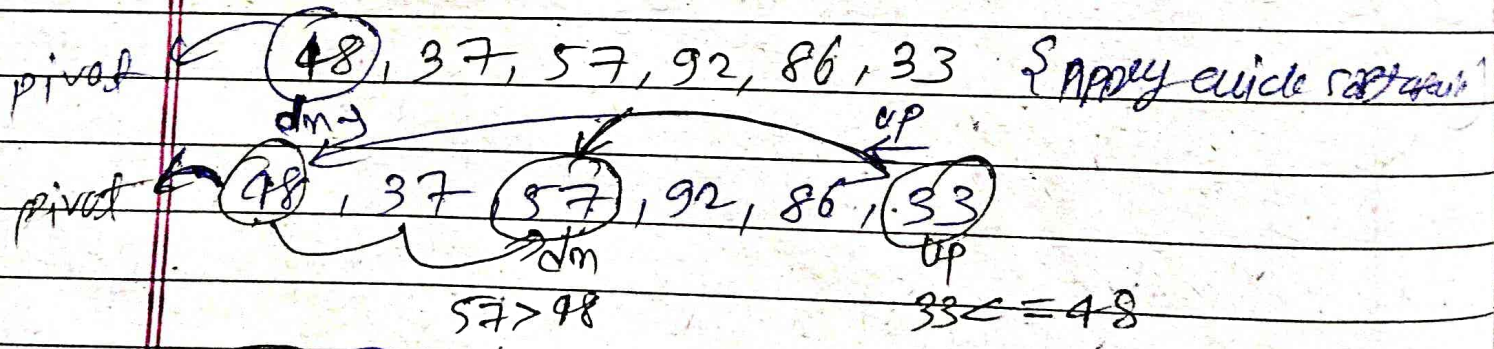 pivot 48, 37, 57, 92, 86, 33 {Apply quick sort
dn up
pivot 48, 37 57, 92, 86, 33
dn up
57>48 33<=48